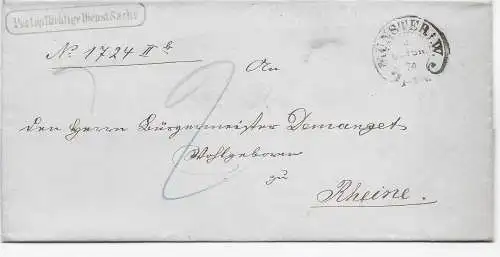 Portopflichtige Dienst Sache
MÜNSTER W.
No 1724 II b
An
2
den Herrn Bürgermeister Demanget
Wohlgeboren
zu
Rheine.